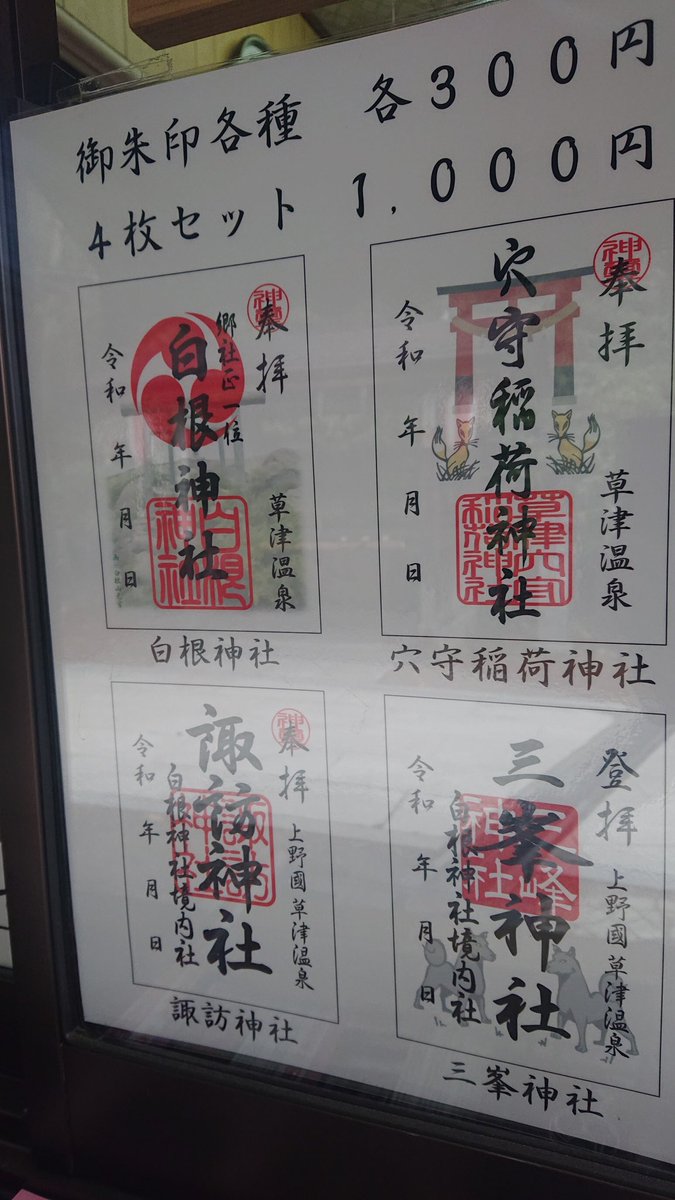 御朱印各種 各300円
4枚セット 1,000円
奉拝
郷社正一位
白根神社
草津温泉
令和 年 月 日
白根神社
白根神社
奉拝
穴守稲荷神社
草津温泉
令和 年 月 日
草津穴守稲荷神社
穴守稲荷神社
奉拝
上野國草津温泉
諏訪神社
白根神社境内社
令和 年 月 日
諏訪神社
登拝
上野國草津温泉
三峯神社
白根神社境内社
令和 年 月 日
三峰神社
三峯神社